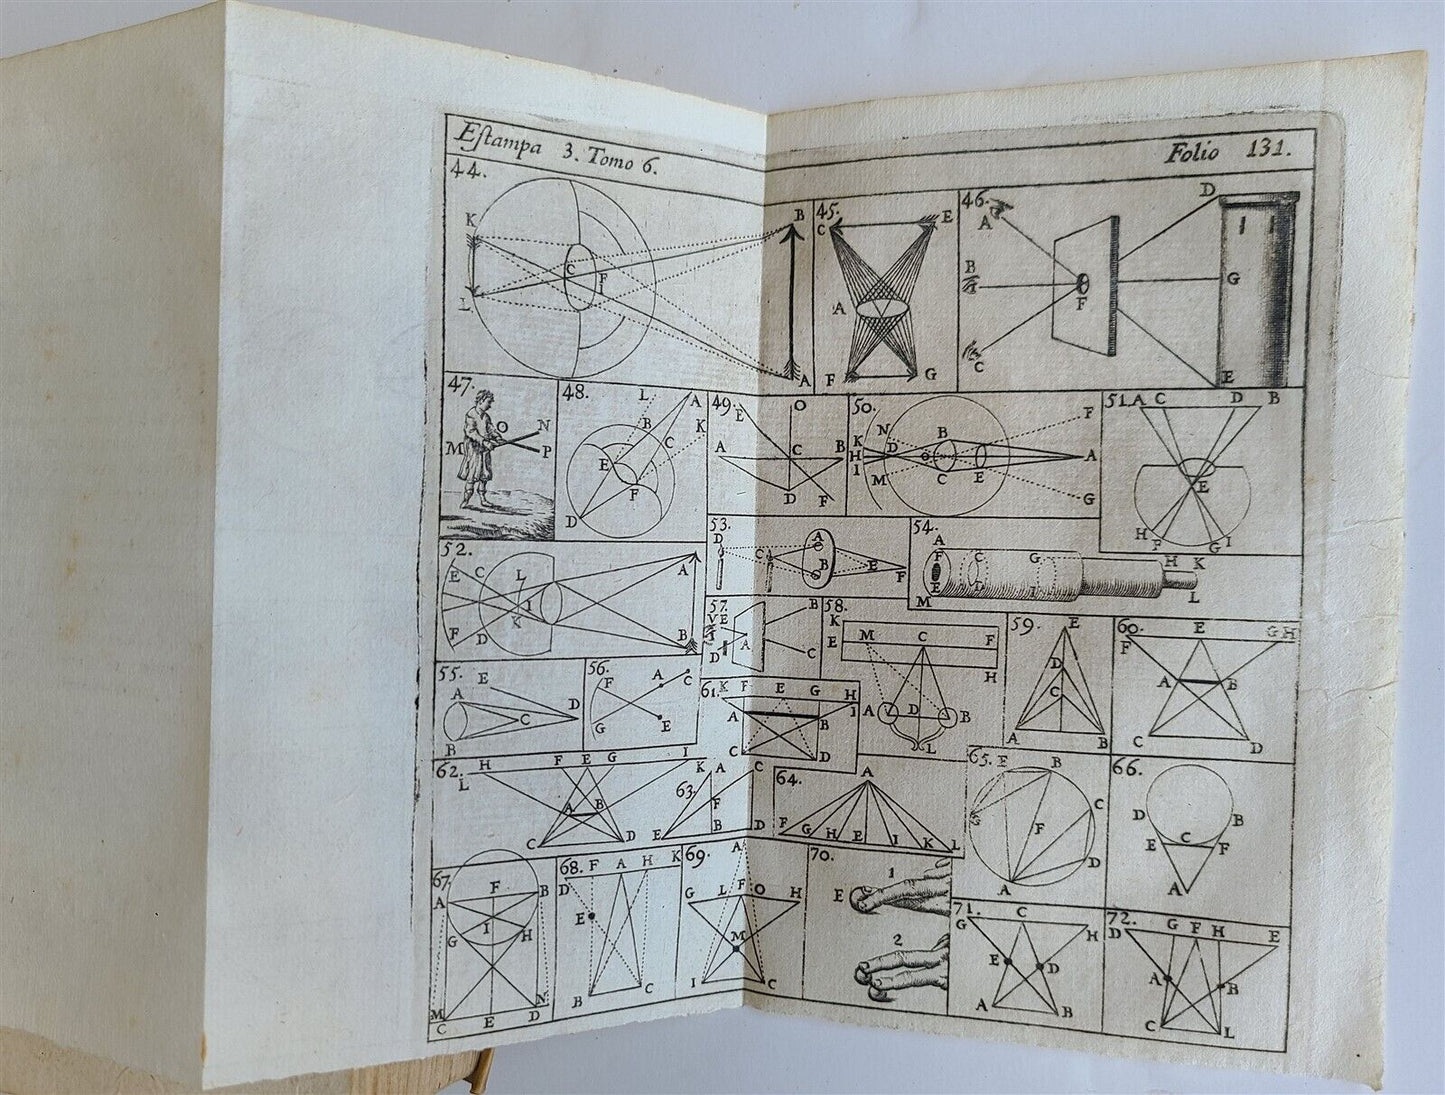 Eſtampa 3. Tomo 6.
Folio 131.
44.
K
L
C
F
B
A
45.
C
E
A
F
G
46.
A
B
C
F
D
G
E
47.
M
O
N
P
48.
L
A
B
K
C
E
F
D
49.
E
O
A
C
B
D
F
50.
N
B
F
K
H
D
O
A
I
M
C
E
G
51.
A
C
D
B
E
H
F
G
I
52.
E
C
L
A
I
K
F
D
B
53.
D
C
A
B
E
F
54.
A
F
C
G
H
K
E
D
I
L
M
55.
A
E
C
D
B
56.
F
A
C
G
E
57.
E
B
A
D
C
58.
K
E
M
C
F
H
A
D
B
L
59.
E
D
C
A
B
60.
F
E
G
H
A
B
C
D
61.
K
F
E
G
H
A
B
I
C
D
62.
L
H
F
E
G
I
A
B
C
D
63.
K
A
C
F
B
E
D
64.
A
F
G
H
E
I
K
L
65.
E
B
G
C
F
D
A
66.
D
B
C
E
F
A
67.
A
F
B
I
G
H
M
C
E
D
N
68.
D
F
A
H
K
E
B
C
69.
A
G
L
F
O
H
M
I
C
70.
1
E
2
71.
G
C
H
E
D
A
B
72.
D
G
F
H
E
A
B
C
L